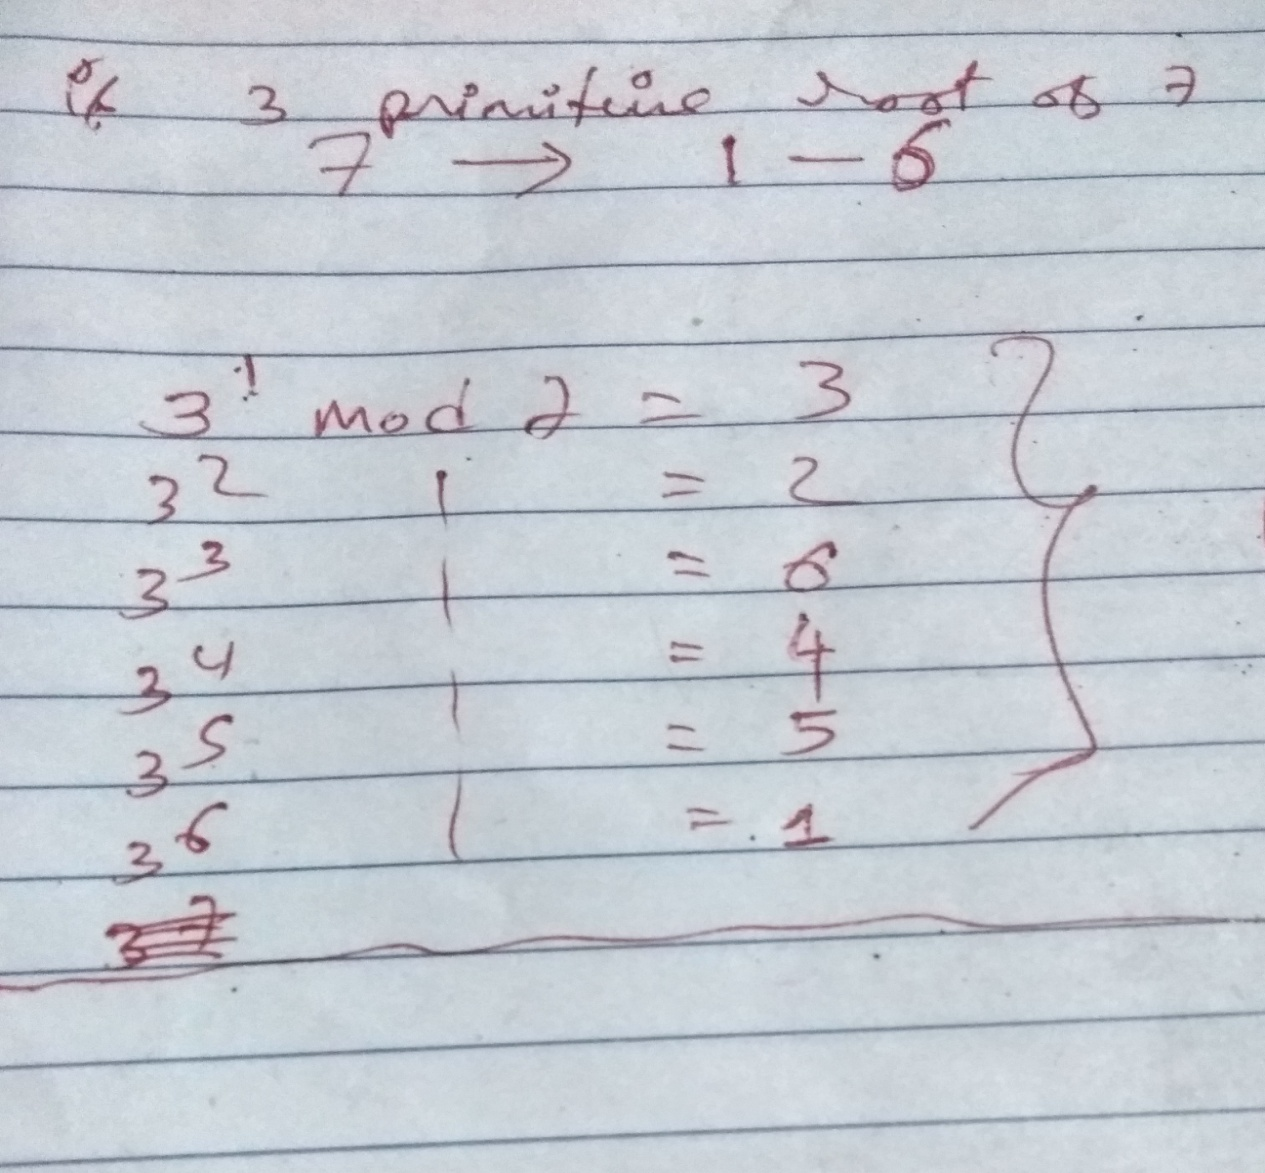 if 3 primitive root of 7
7 → 1 - 6
3^1 mod 7 = 3
3^2 | = 2
3^3 | = 6
3^4 | = 4
3^5 | = 5
3^6 | = 1
3^7